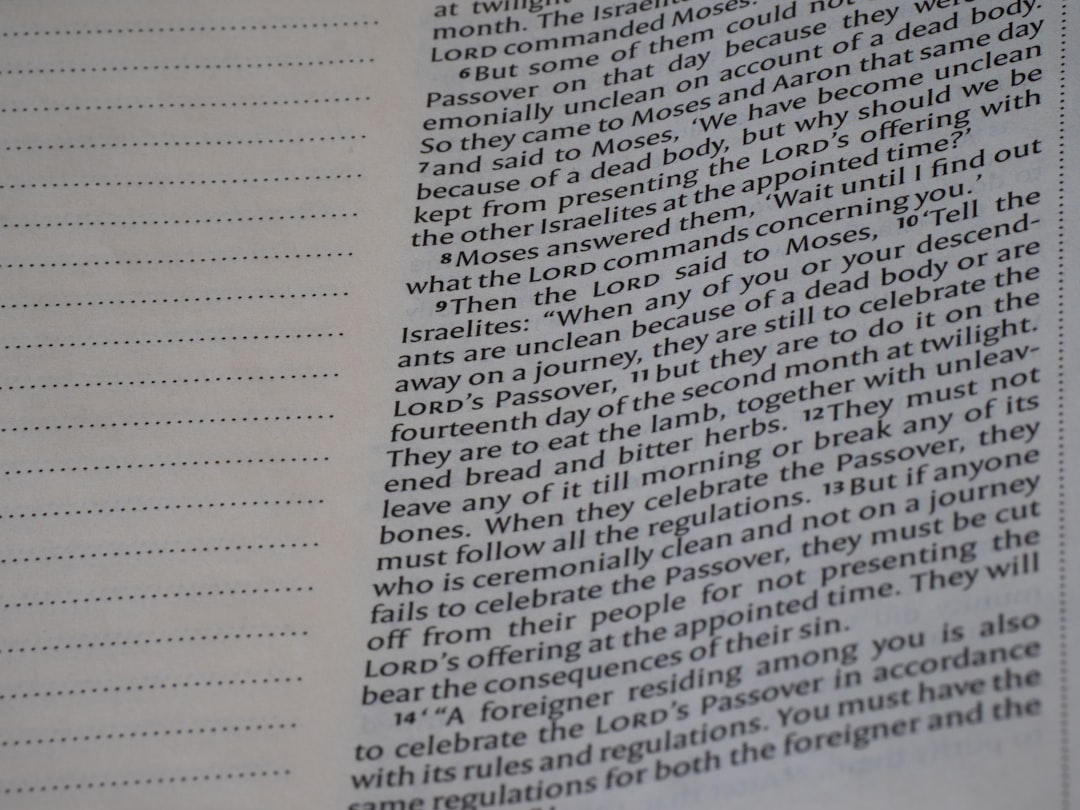 at twilight
month. The Israel
LORD commanded Moses.
6But some of them could not
Passover on that day because they were
emonially unclean on account of a dead body.
So they came to Moses and Aaron that same day
7and said to Moses, ‘We have become unclean
because of a dead body, but why should we be
kept from presenting the LORD’s offering with
the other Israelites at the appointed time?’
8Moses answered them, ‘Wait until I find out
what the LORD commands concerning you.’
9Then the LORD said to Moses, 10‘Tell the
Israelites: “When any of you or your descend-
ants are unclean because of a dead body or are
away on a journey, they are still to celebrate the
LORD’s Passover, 11but they are to do it on the
fourteenth day of the second month at twilight.
They are to eat the lamb, together with unleav-
ened bread and bitter herbs. 12They must not
leave any of it till morning or break any of its
bones. When they celebrate the Passover, they
must follow all the regulations. 13But if anyone
who is ceremonially clean and not on a journey
fails to celebrate the Passover, they must be cut
off from their people for not presenting the
LORD’s offering at the appointed time. They will
bear the consequences of their sin.
14‘“A foreigner residing among you is also
to celebrate the LORD’s Passover in accordance
with its rules and regulations. You must have the
same regulations for both the foreigner and the